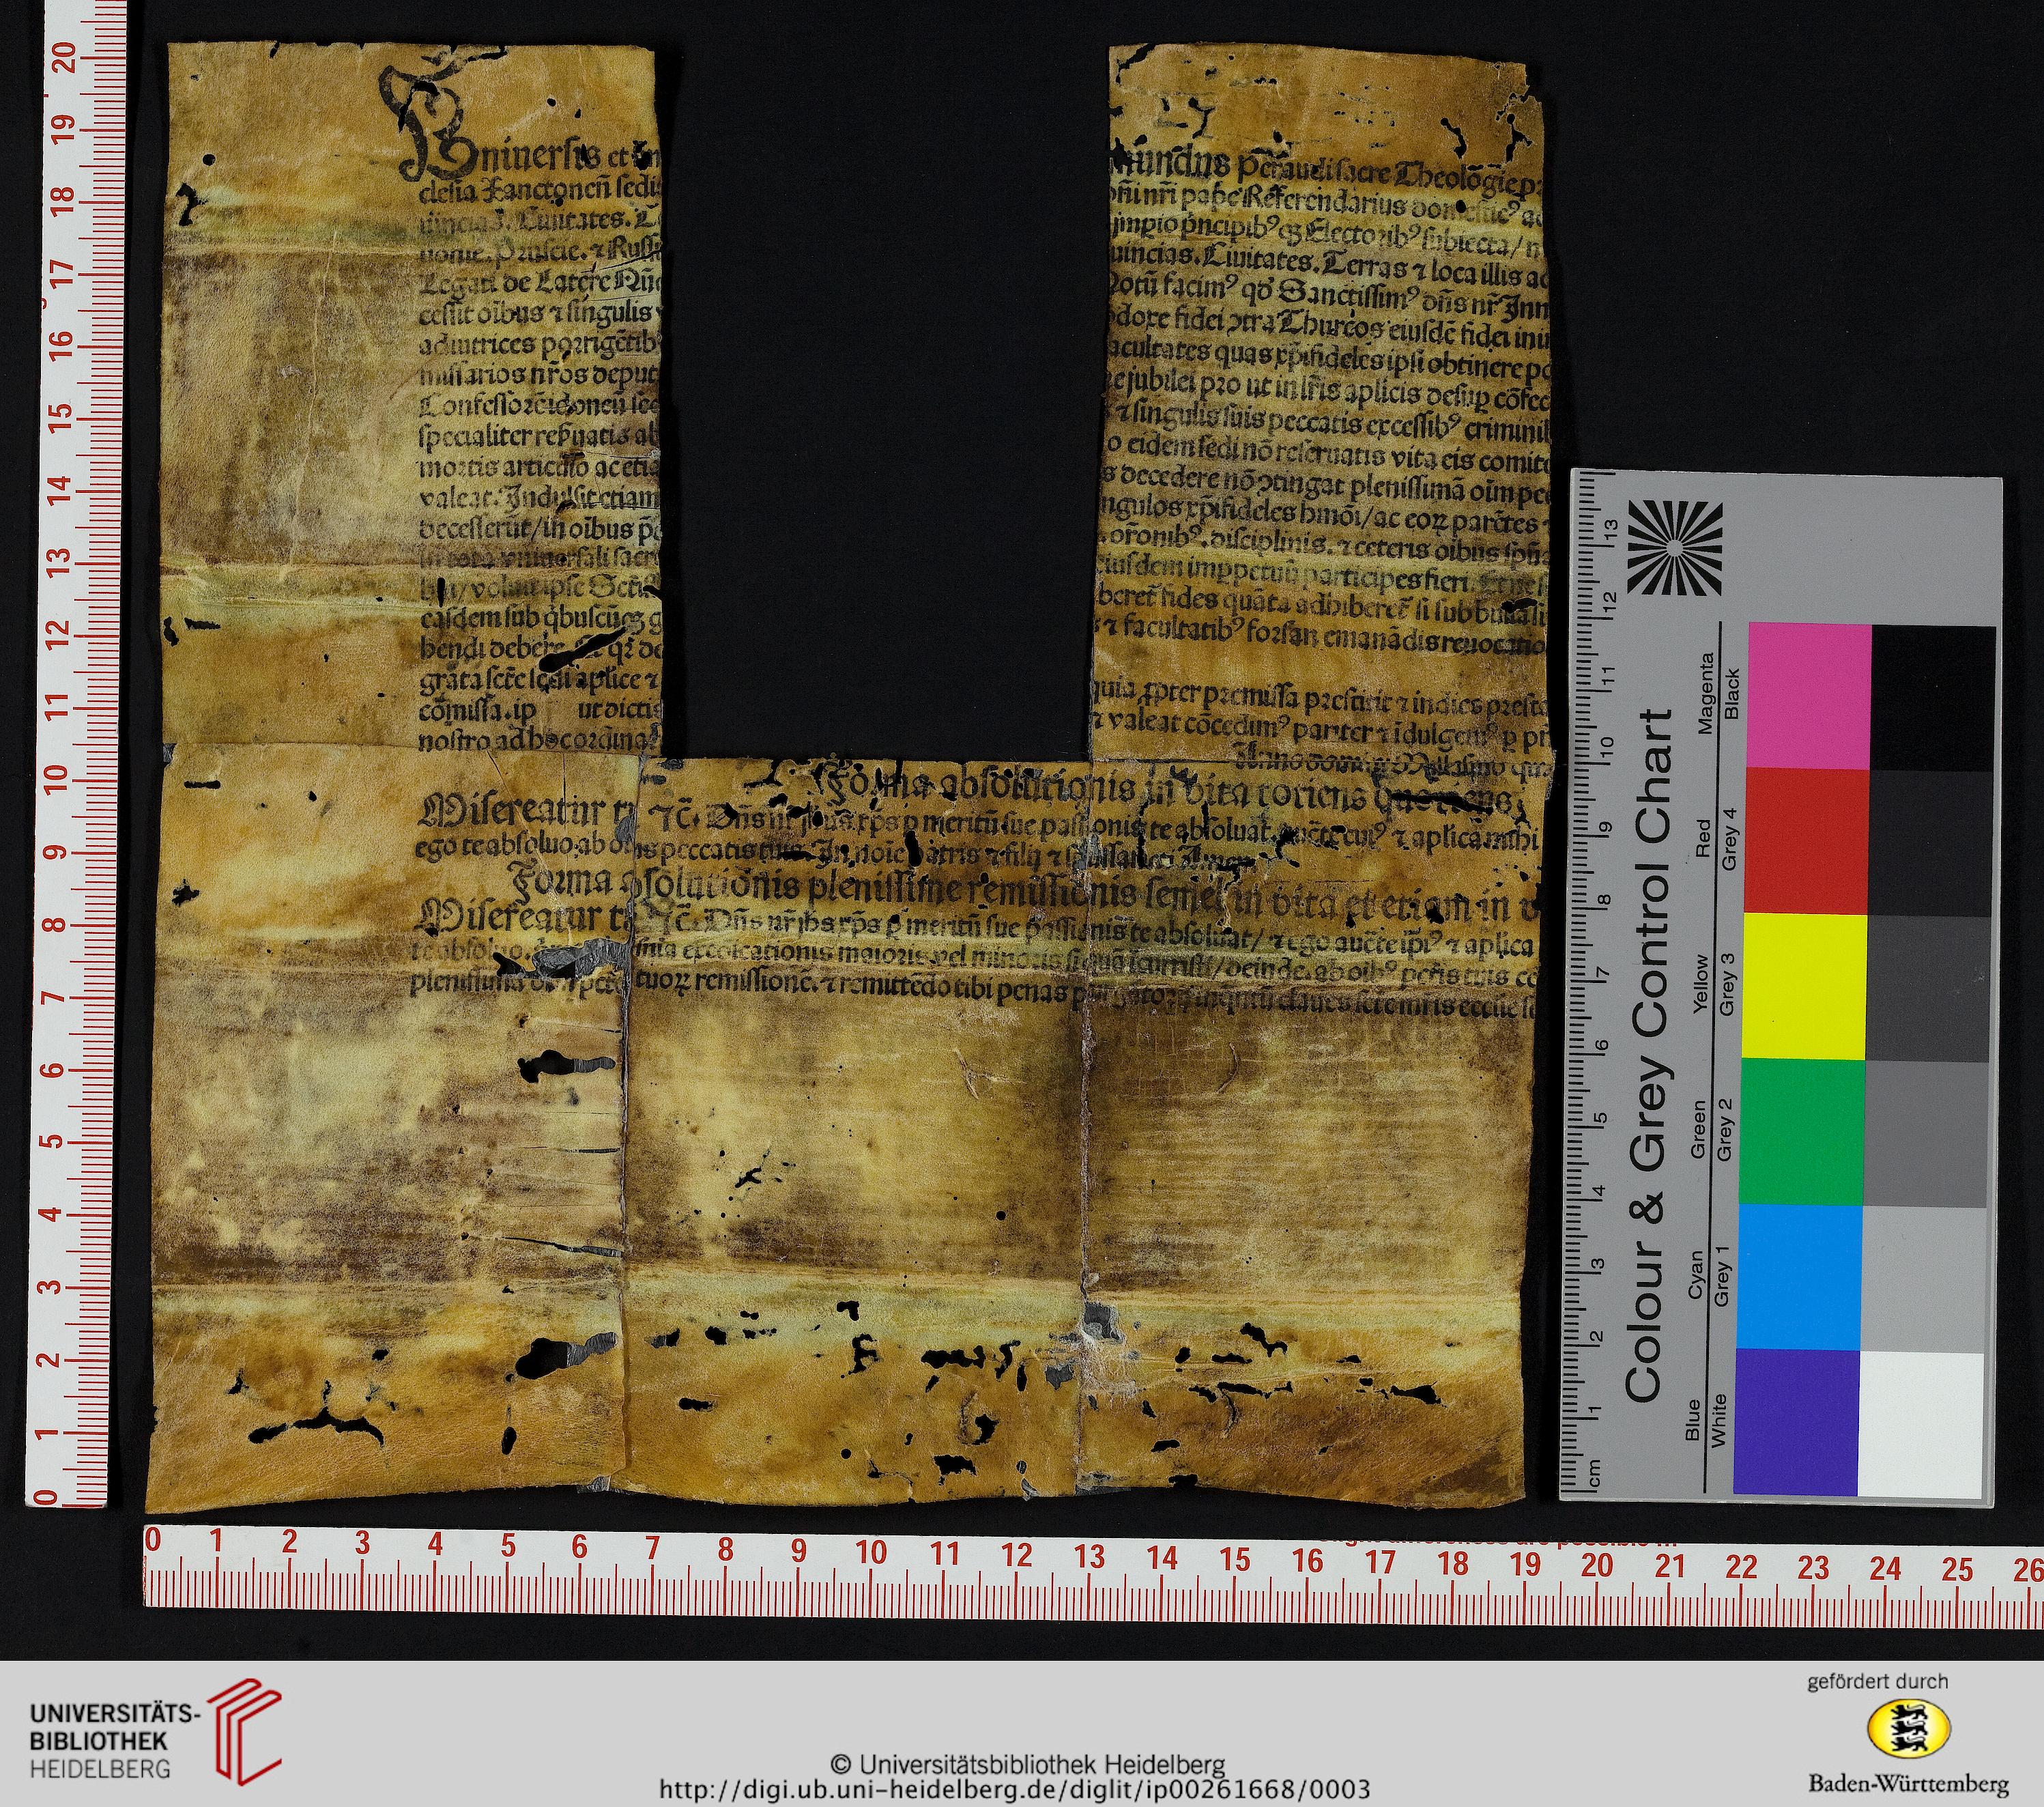 Uniuersis et in
clesia Xanctoneñ sedis
uincias. Ciuitates. T
uonie. Prussie. ⁊ Russi
Legati de Latere Nũc
cessit oĩbus ⁊ singulis
adiutrices porrigẽtib⁹
missarios nr̃os deput
Confessorẽ idoneũ sec
specialiter res̃uatis ab
mortis articulo ac etia
valeat. Indulsit etiam
decesserũt / in oĩbus p̃c
in tota vniuersali sacr
bili / voluit ipse Scti
easdem sub q̇buscũqꝫ g
hendi debere. qꝛ de
grãta scẽ sedi aplice ⁊
cõmissa. ip ut dictis
nostro ad hoc ordina
mundus Peraudi sacre Theologie p:
oñi nr̃i pape Referendarius domestic⁹ ac
impio p̃ncipib⁹ qꝫ Electorib⁹ subiecta / n
uincias. Ciuitates. Terras ⁊ loca illis ac
Notũ facim⁹ qď Sanctissim⁹ dñs nr̃ Inn
odoxe fidei ɔtra Thurcos eiusdẽ fidei ini
acultates quas xp̃ifideles ipsi obtinere po
e jubilei pro ut in lr̃is aplicis desup̱ cõfec
⁊ singulis suis peccatis excessib⁹ criminib
o eidem sedi nõ reseruatis vita eis comite
s decedere nõ ɔtingat plenissimã oĩm pec
ngulos xp̃ifideles hmõi / ac eoꝝ parẽtes
or̃onib⁹. disciplinis. ⁊ ceteris oĩbus spũa
eiusdem imp̱petuũ participes fieri. Et ne
beret fides quãta adhiberet̃ si sub bulla si
⁊ facultatib⁹ forsan emanãdis reuocatio
quia ꝓpter premissa prestitit ⁊ indies presta
⁊ valeat cõcedim⁹ pariter ⁊ ĩdulgem⁹ p̱ pr
Anno domini Millesimo qua
Forma absolutionis in vita totiens quotiens
Misereatur tui ⁊c̃. Dñs nr̃ jhesus xp̃s p̱ meritũ sue passionis te absoluat. auctẽ cui⁹ ⁊ aplicã mihi
ego te absoluo. ab oĩbus peccatis tuis. In noĩe patris ⁊ filij ⁊ spũssancti Amen
Forma absolutionis plenissime remissionis semel in vita et etiam in
Misereatur tui ⁊c̃. Dñs nr̃ jhs xp̃s p̱ meritũ sue passionis te absoluat / ⁊ ego auctẽ ip̃i⁹ ⁊ aplica
te absoluo. nĩa excõicationis maioris vel minoris si quã incurristi / deinde. ab oĩb⁹ pctĩs tuis cõ
plenissimã oĩm pctõ tuoꝝ remissionẽ. ⁊ remittẽdo tibi penas purgatorij inqũtũ claues scẽ mr̃is ecclie
0 1 2 3 4 5 6 7 8 9 10 11 12 13 14 15 16 17 18 19 20
0 1 2 3 4 5 6 7 8 9 10 11 12 13 14 15 16 17 18 19 20 21 22 23 24 25 26
Colour & Grey Control Chart
cm 1 2 3 4 5 6 7 8 9 10 11 12 13
Blue Cyan Green Yellow Red Magenta
White Grey 1 Grey 2 Grey 3 Grey 4 Black
UNIVERSITÄTS-
BIBLIOTHEK
HEIDELBERG
© Universitätsbibliothek Heidelberg
http://digi.ub.uni-heidelberg.de/diglit/ip00261668/0003
gefördert durch
Baden-Württemberg